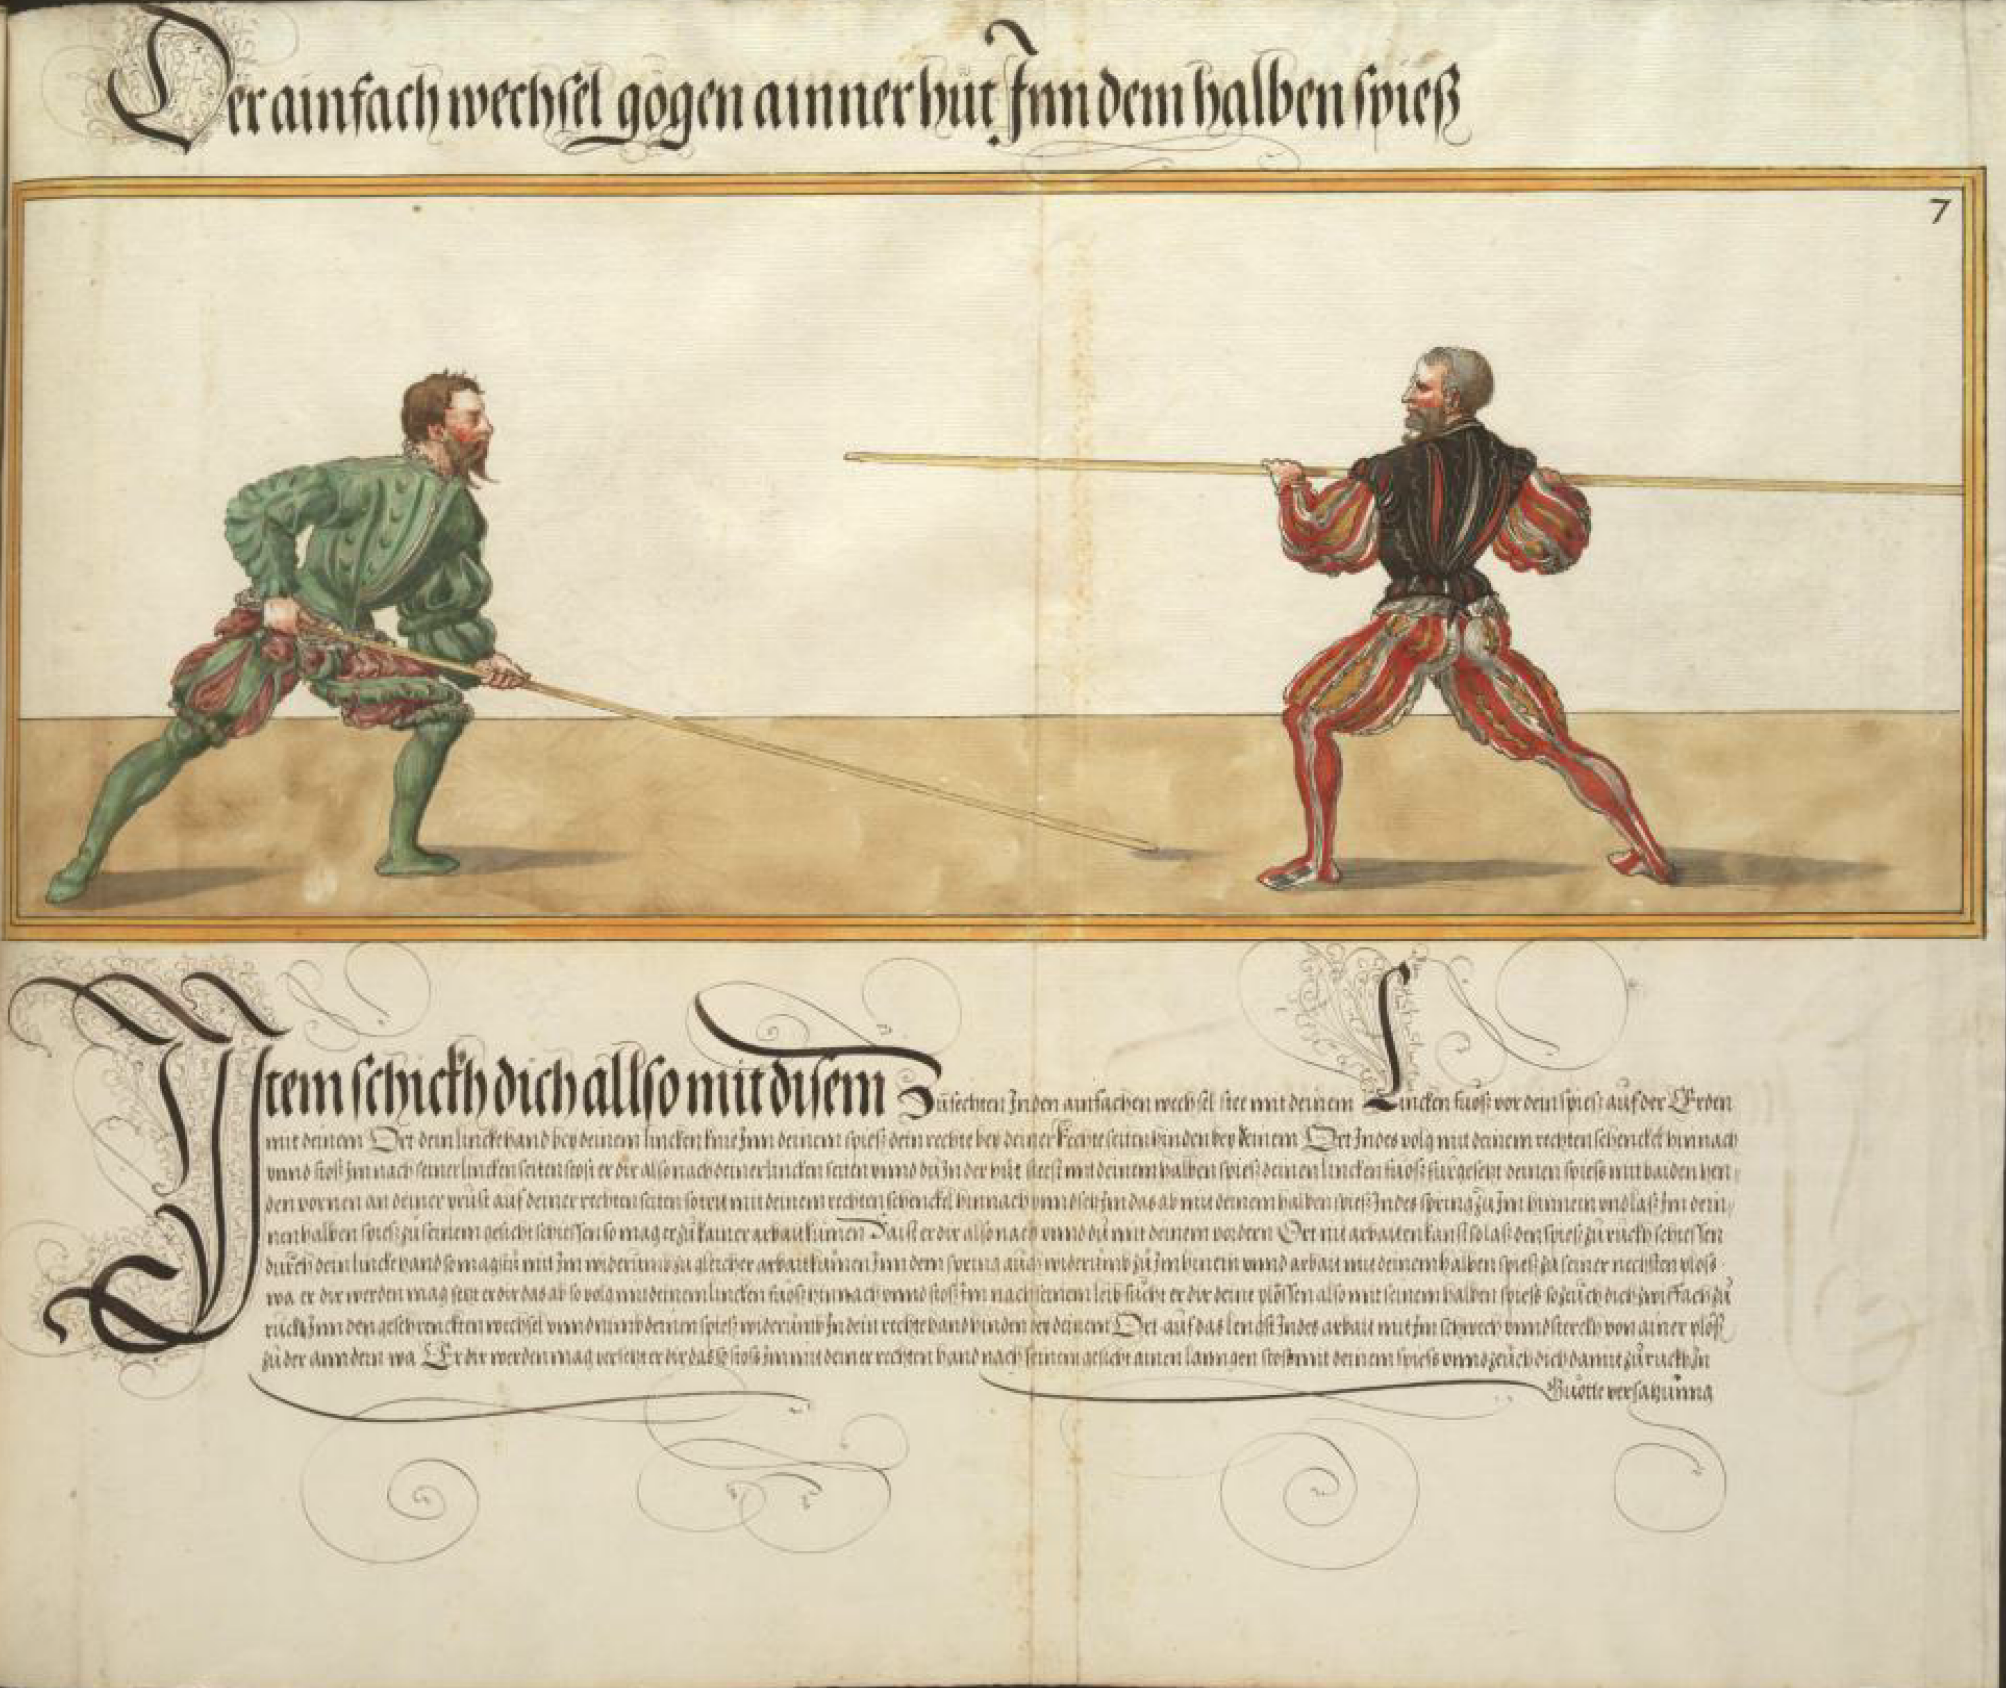 Der ainfach wechsel gögen ainner hůt Inn dem halben spieß
7
Item schickh dich allso mit disem Zůfechten In den ainfachen wechsel stee mit deinem Lincken fůoß vor dein spiess auf der Erden
mit deinem Ort dein lincke hand bey deinem lincken knie Inn deinem spieß dein rechte bey deiner Rechte seiten hinden bey deinem Ort Indes volg mit deinem rechten schenckel hinnach
vnnd stoß Im nach seiner lincken seiten stost er dir also nach deiner lincken seiten vnnd dů In der hůt steest mit deinem halben spieß deinen lincken fůoß fürgesetzt deinen spieß mit baiden hen,,
den vornen an deiner prüst auf deiner rechten seiten so trit mit deinem rechten schenckel hinnach vnnd setz Im das ab mit deinem halben spieß Indes spring zů Im hinnein vnd laß Im dein,,
nen halben spieß zů seinem gesicht schiessen so mag er zů kainer arbait kůmen Da ist er dir also nach vnnd dů mit deinem vordern Ort nit arbaiten kanst so laß den spieß zů růckh schiessen
durch dein lincke hand so magstů mit Im widerůmb zů gleicher arbait kůmen Inn dem spring aůch widerůmb zů Im hinein vnnd arbait mit deinem halben spieß zů seiner nechsten ploß
wa er dir werden mag setzt er dir das ab so volg mit deinem lincken fůoß hinnach vnnd stoß Im nach seinem leib sůcht er dir deine plössen also mit seinem halben spieß so zeůch dich zwiffach zů
rückh Inn den geschrenckten wechsel vnnd nimb deinen spieß widerůmb In dein rechte hand hinden bey deinem Ort auf das lengst Indes arbait mit Im schwech vnnd sterckh von ainer ploß
zů der anndern wa Er dir werden mag versetzt er dir das so stoß Im mit deiner rechten hand nach seinem gesicht ainen lanngen stoß mit deinem spieß vnnd zeůch dich damit zů růckh In
Gůotte versatzůnng